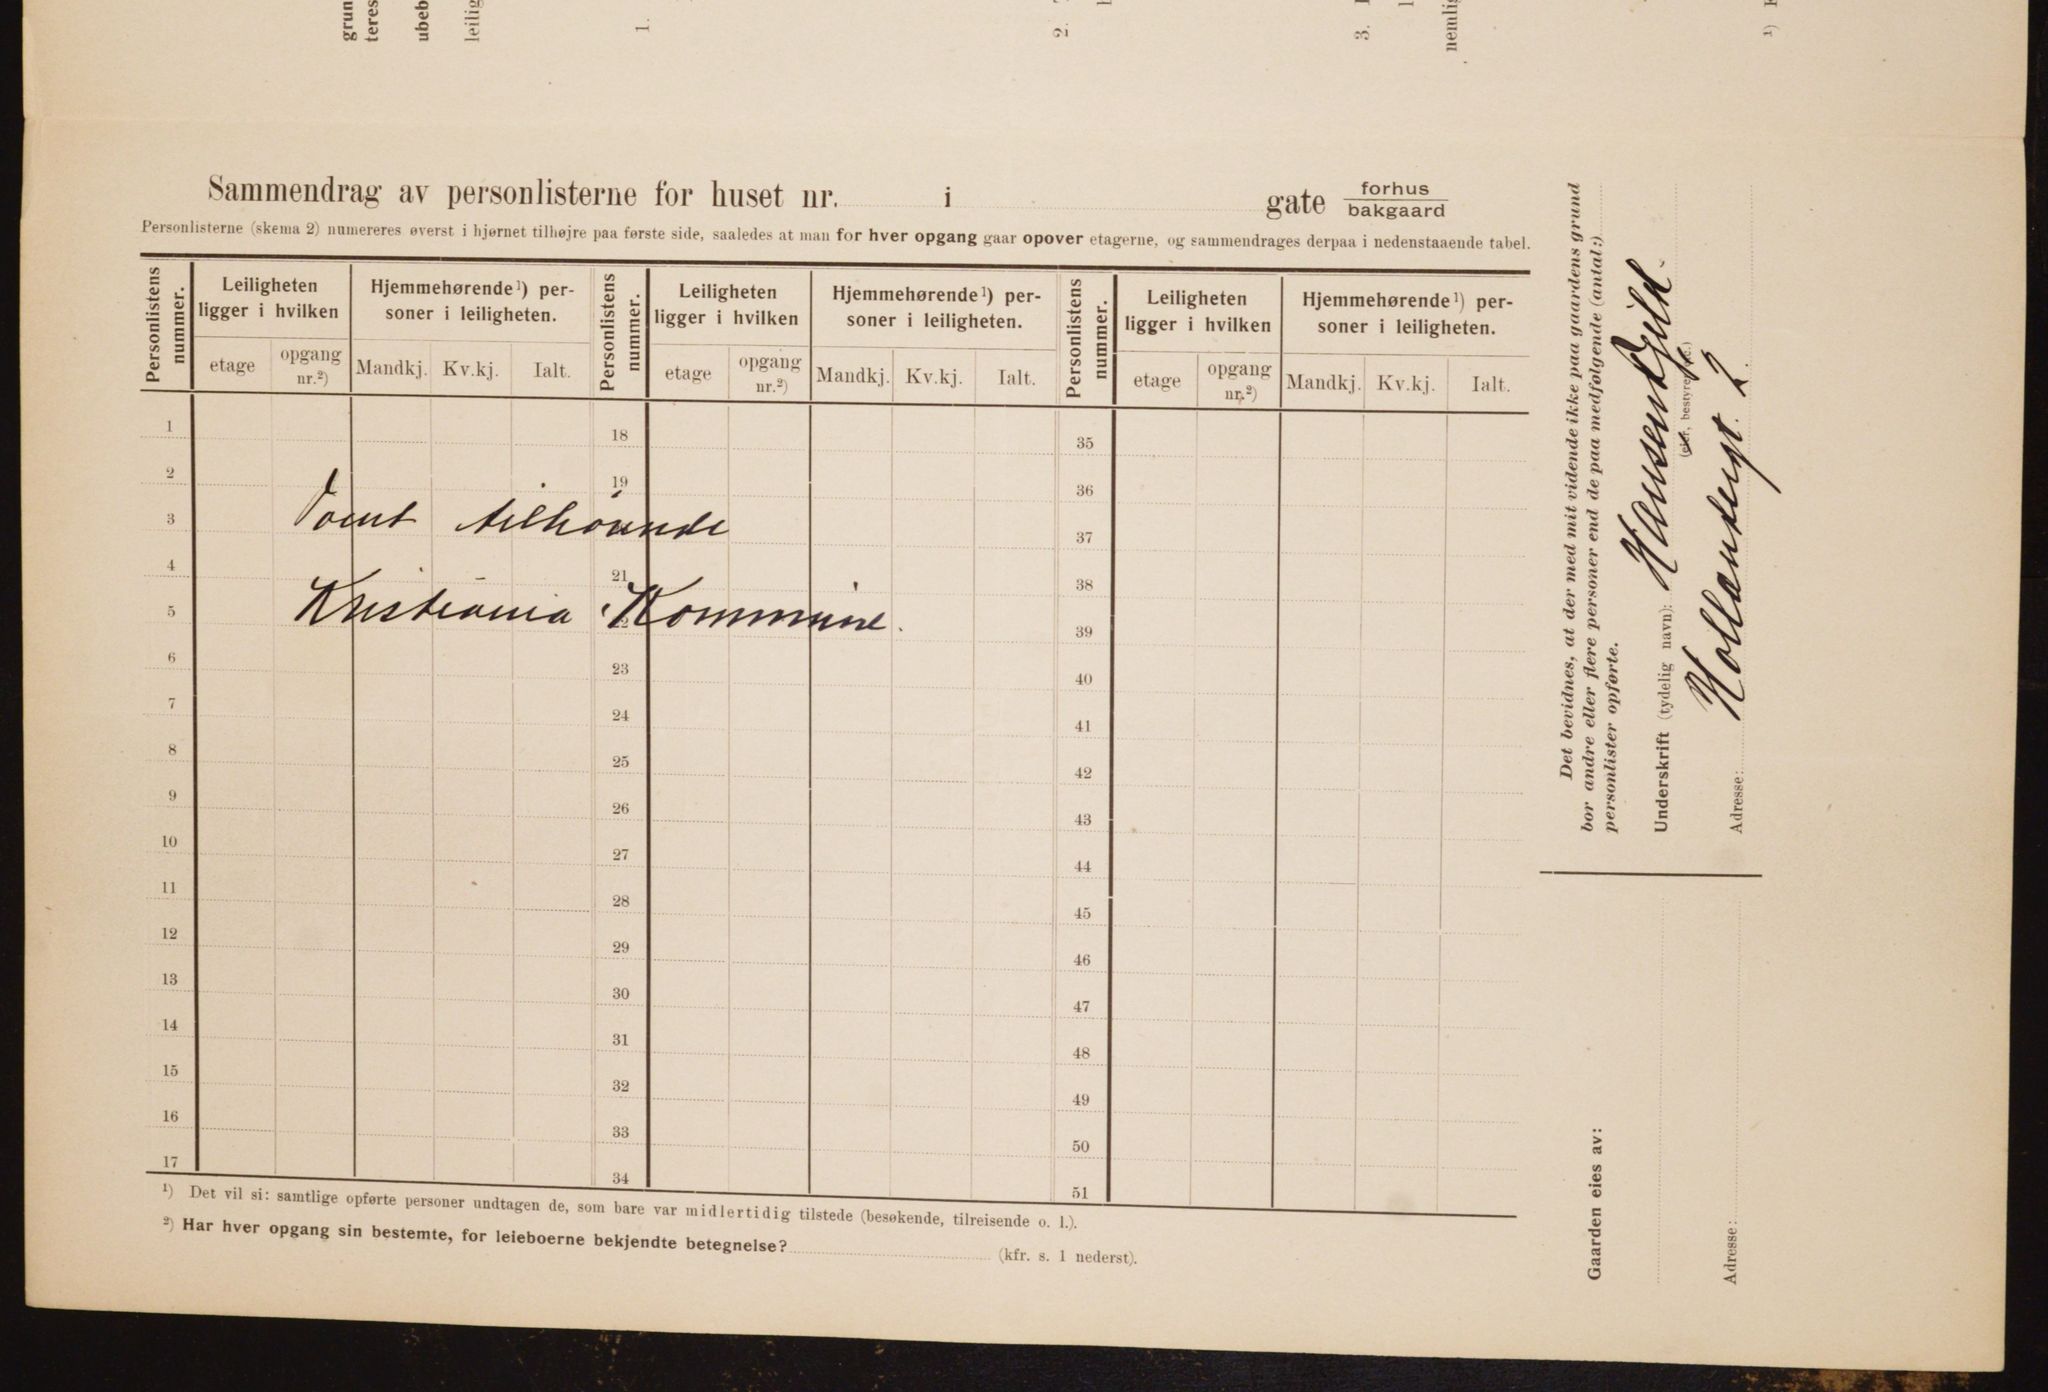 grun
teres
ubeb
leilig
1.
2.
3.
nemlig
1)
Sammendrag av personlisterne for huset nr. i gate forhus
bakgaard
Personlisterne (skema 2) numereres øverst i hjørnet tilhøjre paa første side, saaledes at man for hver opgang gaar opover etagerne, og sammendrages derpaa i nedenstaaende tabel.
Personlistens nummer. Leiligheten ligger i hvilken Hjemmehørende¹) personer i leiligheten. Personlistens nummer. Leiligheten ligger i hvilken Hjemmehørende¹) personer i leiligheten. Personlistens nummer. Leiligheten ligger i hvilken Hjemmehørende¹) personer i leiligheten.
etage opgang nr.²) Mandkj. Kv.kj. Ialt. etage opgang nr.²) Mandkj. Kv.kj. Ialt. etage opgang nr.²) Mandkj. Kv.kj. Ialt.
1 18 35
2 19 36
3 Tomt tilhørende 37
4 21 38
5 Kristiania Kommune. 39
6 23 40
7 24 41
8 25 42
9 26 43
10 27 44
11 28 45
12 29 46
13 30 47
14 31 48
15 32 49
16 33 50
17 34 51
¹) Det vil si: samtlige opførte personer undtagen de, som bare var midlertidig tilstede (besøkende, tilreisende o. l.).
²) Har hver opgang sin bestemte, for leieboerne bekjendte betegnelse? (kfr. s. 1 nederst).
Det bevidnes, at der med mit vidende ikke paa gaardens grund
bor andre eller flere personer end de paa medfølgende (antal:)
personlister opførte.
Underskrift (tydelig navn):
(eier, bestyrer etc.)
Adresse: Hollændergt. 2.
Gaarden eies av:
Adresse: